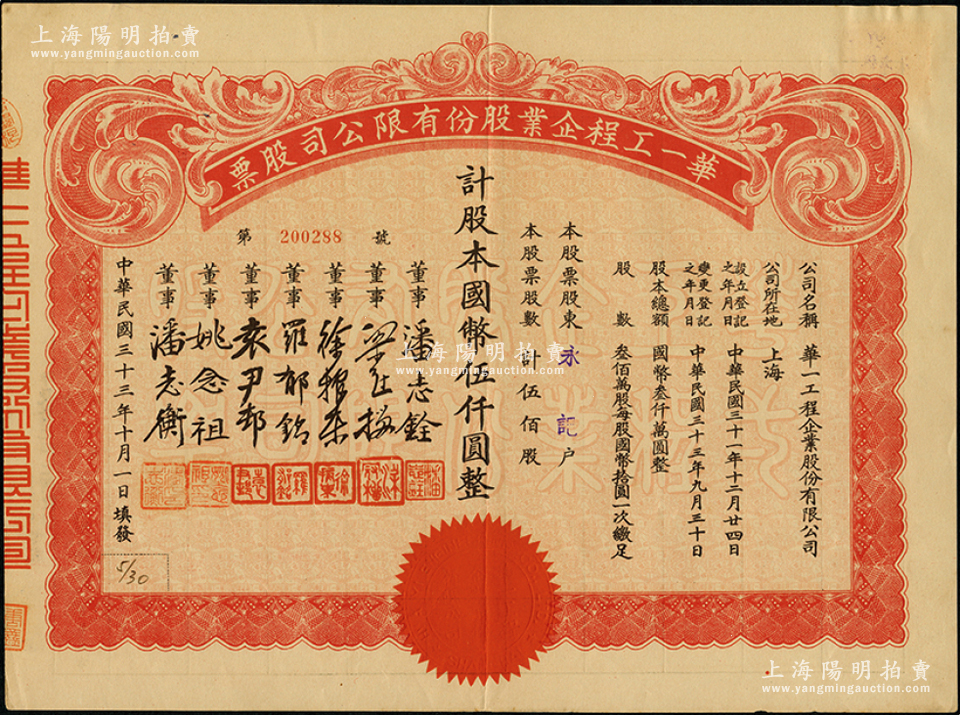 上海陽明拍賣
www.yangmingauction.com
上海陽明拍賣
www.yangmingauction.com
華一工程企業股份有限公司股票
公司名稱 華一工程企業股份有限公司
公司所在地 上海
設立登記之年月日 中華民國三十一年十二月廿四日
變更登記之年月日 中華民國三十三年九月三十日
股本總額 國幣叁仟萬圓整
股數 叁佰萬股每股國幣拾圓一次繳足
本股票股東 永記户
本股票股數 計伍佰股
計股本國幣伍仟圓整
第 200288 號
董事 潘志銓
董事
董事 徐
董事 羅郁銘
董事 袁尹邨
董事 姚念祖
董事 潘志衡
中華民國三十三年十月一日填發
5/30
上海陽明拍賣
www.yangmingauction.com
上海陽明拍賣
www.yangmingauction.com